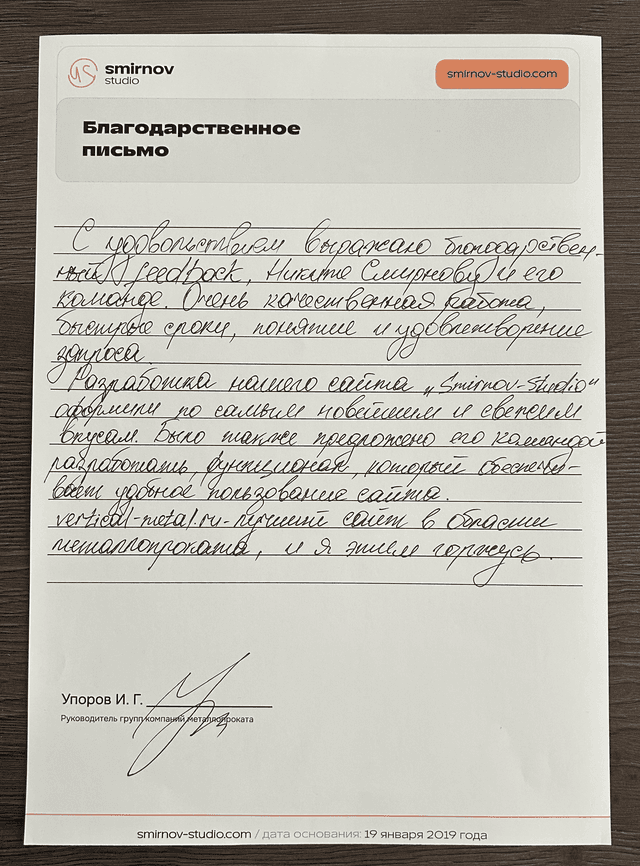 smirnov
studio
smirnov-studio.com
Благодарственное
письмо
С удовольствием выражаю благодарствен-
ный feedback, Никите Смирнову и его
команде. Очень качественная работа,
быстрые сроки, понятие и удовлетворение
запроса.
Разработка нашего сайта „Smirnov-Studio“
оформили по самым новейшим и свежим
вкусам. Было также предложено его командой
разработать, функционал, который обеспечи-
вает удобное пользование сайта.
vertical-metal.ru - лучший сайт в области
металлопроката, и я этим горжусь.
Упоров И. Г.
Руководитель групп компаний металлопроката
smirnov-studio.com / дата основания: 19 января 2019 года